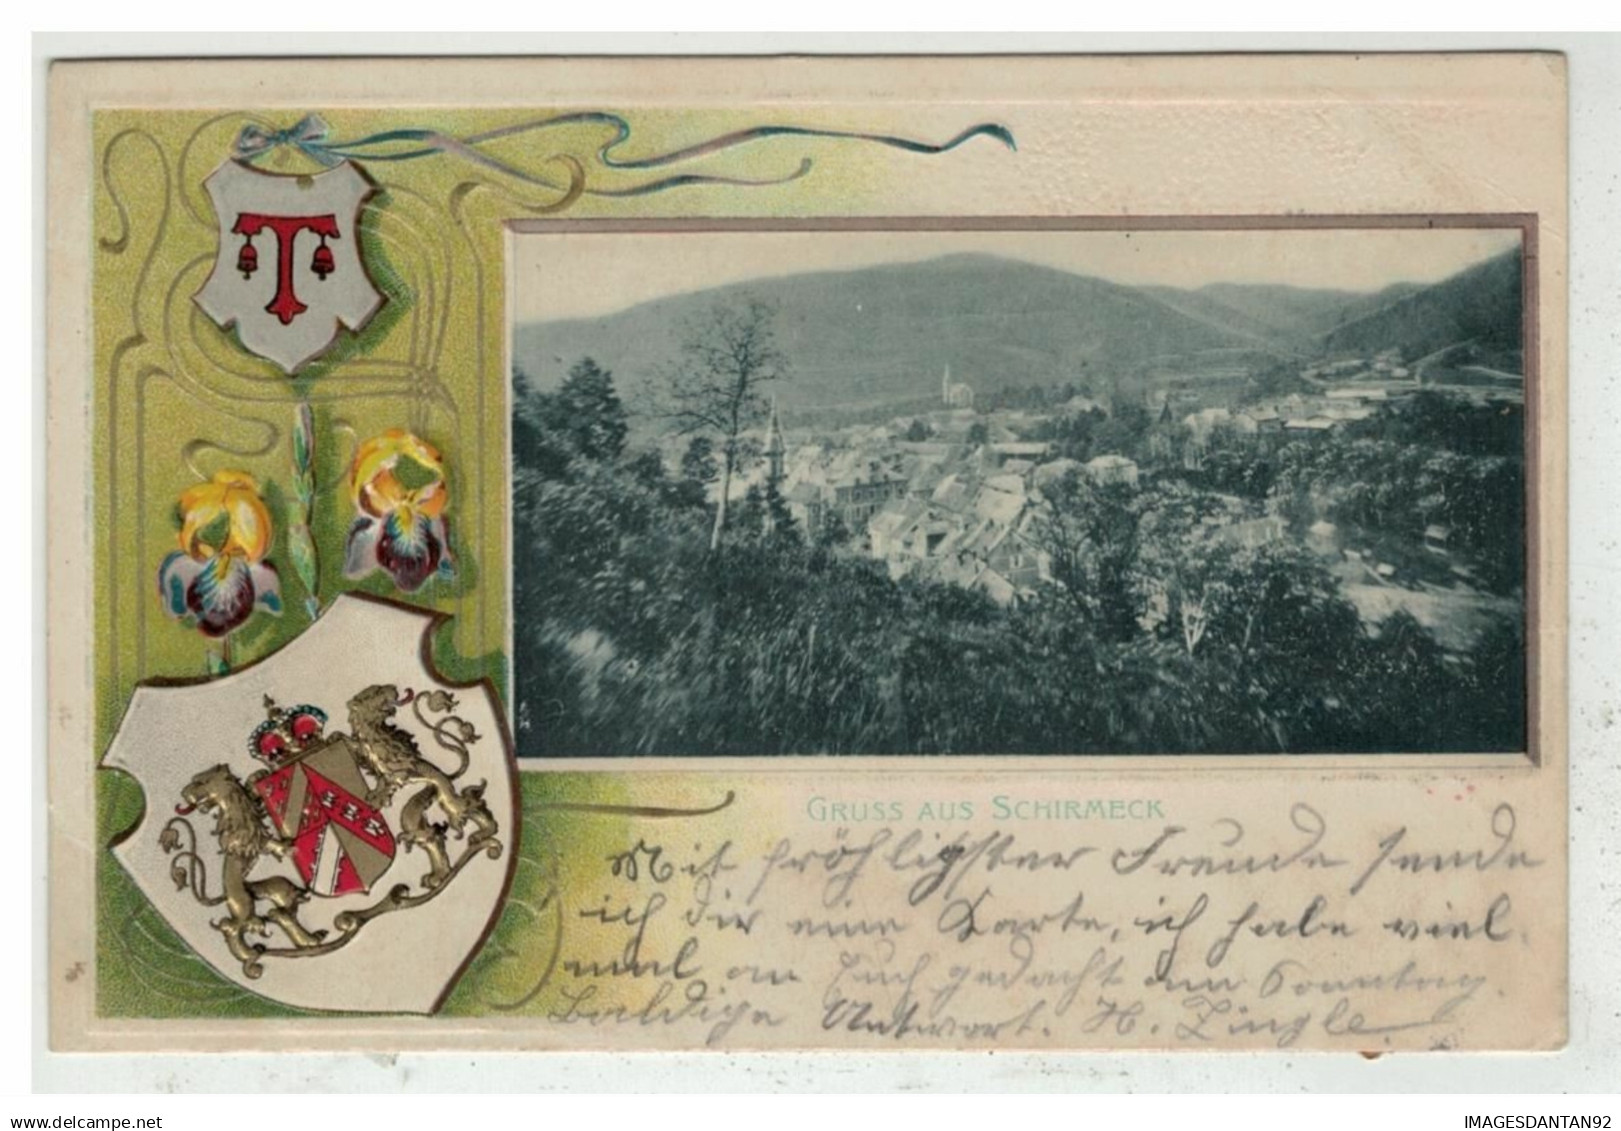 T
GRUSS AUS SCHIRMECK
Mit fröhligster Freude sende
ich dir eine Karte, ich habe viel
mal an Euch gedacht am Sonntag.
Baldige Antwort. H. Zingle
delcampe.net
IMAGESDANTAN92